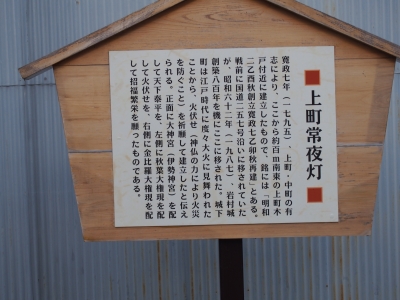 上町常夜灯
寛政七年(一七九五)、上町・中町の有
志により、ここから約百m南東の上町木
戸付近に建立したもので、銘には「明和
二乙酉秋創立寛政七乙卯秋再建」とある。
戦前に国道二五七号沿いに移されていた
が、昭和六十二年(一九八七)、岩村城
創築八百年を機にここに移された。城下
町は江戸時代に度々大火に見舞われた
ことから、火伏せ(神仏の力により火災
を防ぐこと)を祈願して建立したと伝え
られる。正面に大神宮(伊勢神宮)を配
して天下泰平を、左側に秋葉大権現を配
して火伏せを、右側に金比羅大権現を配
して招福繁栄を願ったものである。